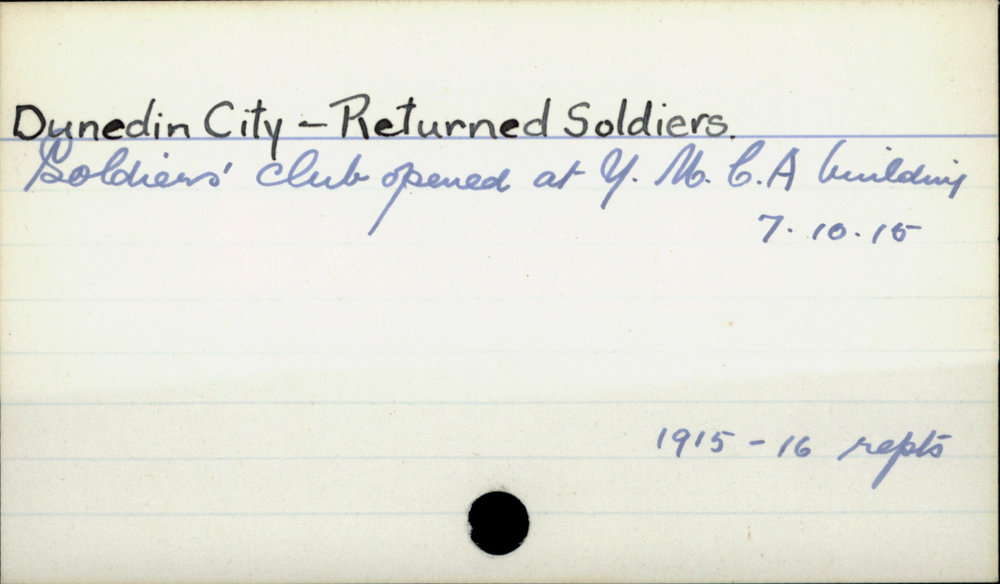 Dunedin City – Returned Soldiers.
Soldiers' club opened at Y. M. C. A building
7. 10. 15
1915 - 16 repts